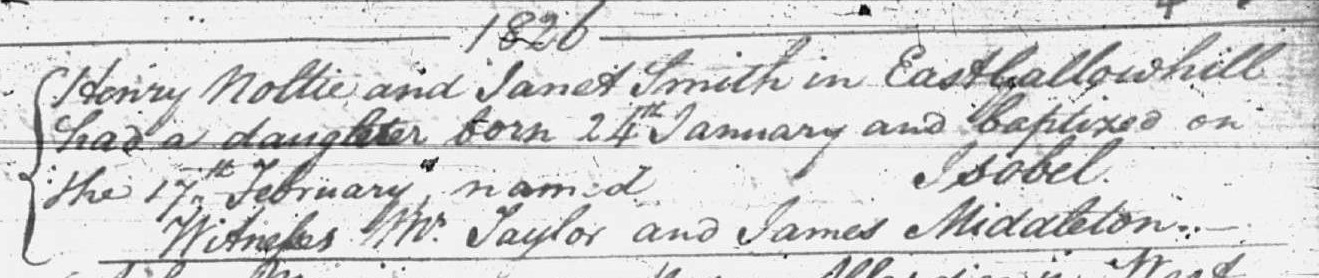 1826
Henry Noltie and Janet Smith in Eastgallowhill
had a daughter born 24th January and baptized on
the 17th February, named Isobel.
Witnesses Wm. Taylor and James Middleton.